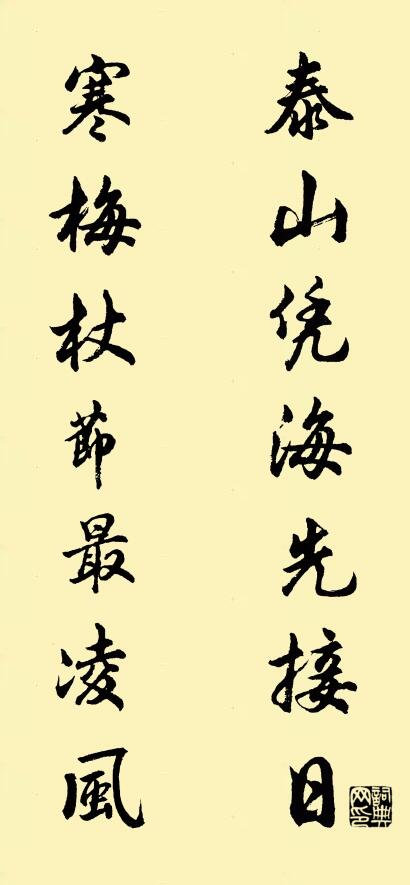 泰山凭海先接日
寒梅杖節最凌風
詞典网印